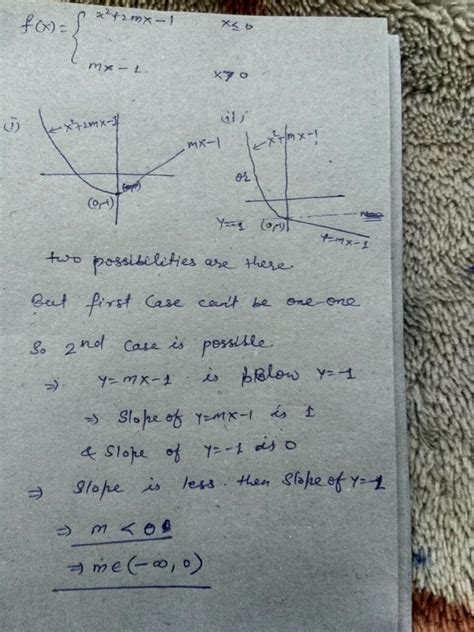 f(x) = { x² + 2mx - 1   x ≤ 0
mx - 1.   x > 0
(i) x² + 2mx - 1   mx - 1   (0,-1)
or
(ii) x² + mx - 1   y = -1   (0,-1)   y = mx - 1
two possibilities are there
But first case can't be one-one
So 2nd case is possible
⇒ y = mx - 1 is below y = -1
⇒ Slope of y = mx - 1 is 1
& Slope of y = -1 is 0
⇒ Slope is less then slope of y = -1
⇒ m < 0
⇒ m ∈ (-∞, 0)